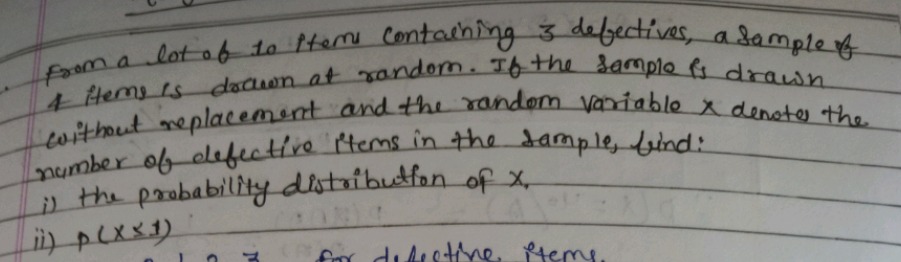 From a lot of 10 items containing 3 defectives, a sample of
4 items is drawn at random. If the sample is drawn
without replacement and the random variable x denotes the
number of defective items in the sample, find:
i) the probability distribution of x.
ii) p(x<1)
1 2 3 for defective items.